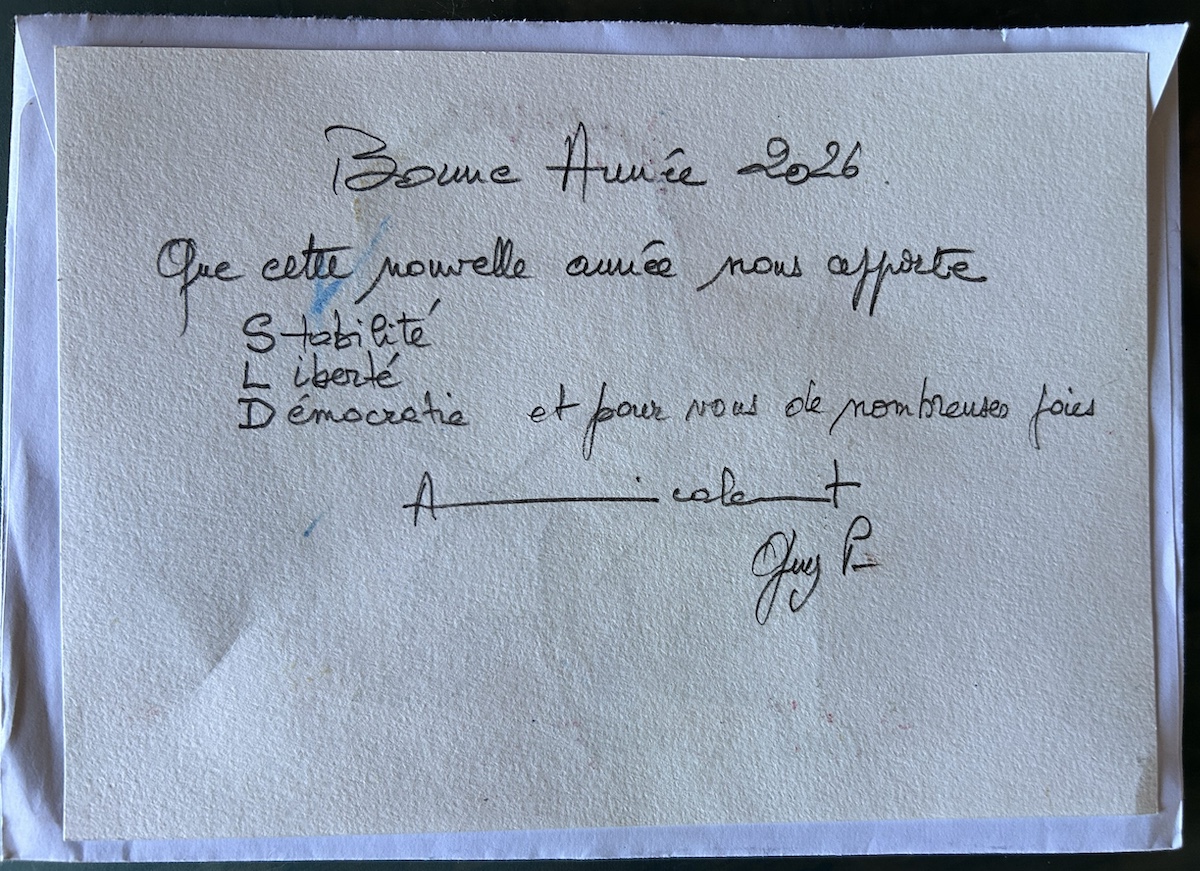 Bonne Année 2026.
Que cette nouvelle année nous apporte
Stabilité
Liberté
Démocratie et pour vous de nombreuses joies
Amicalement
Guy P